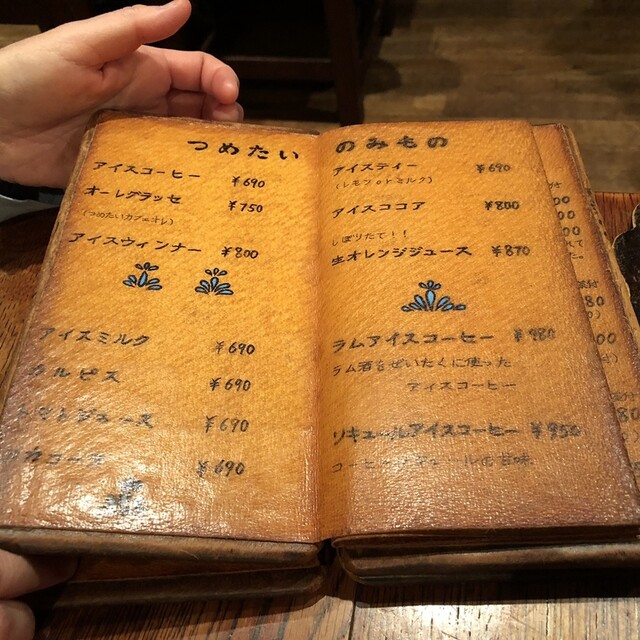 つめたい のみもの
アイスコーヒー ¥690
オーレグラッセ ¥750
(つめたいカフェオレ)
アイスウィンナー ¥800
アイスミルク ¥690
カルピス ¥690
トマトジュース ¥690
コカコーラ ¥690
アイスティー ¥690
(レモン or ミルク)
アイスココア ¥800
しぼりたて!!
生オレンジジュース ¥870
ラムアイスコーヒー ¥980
ラム酒をぜいたくに使った
アイスコーヒー
リキュールアイスコーヒー ¥950